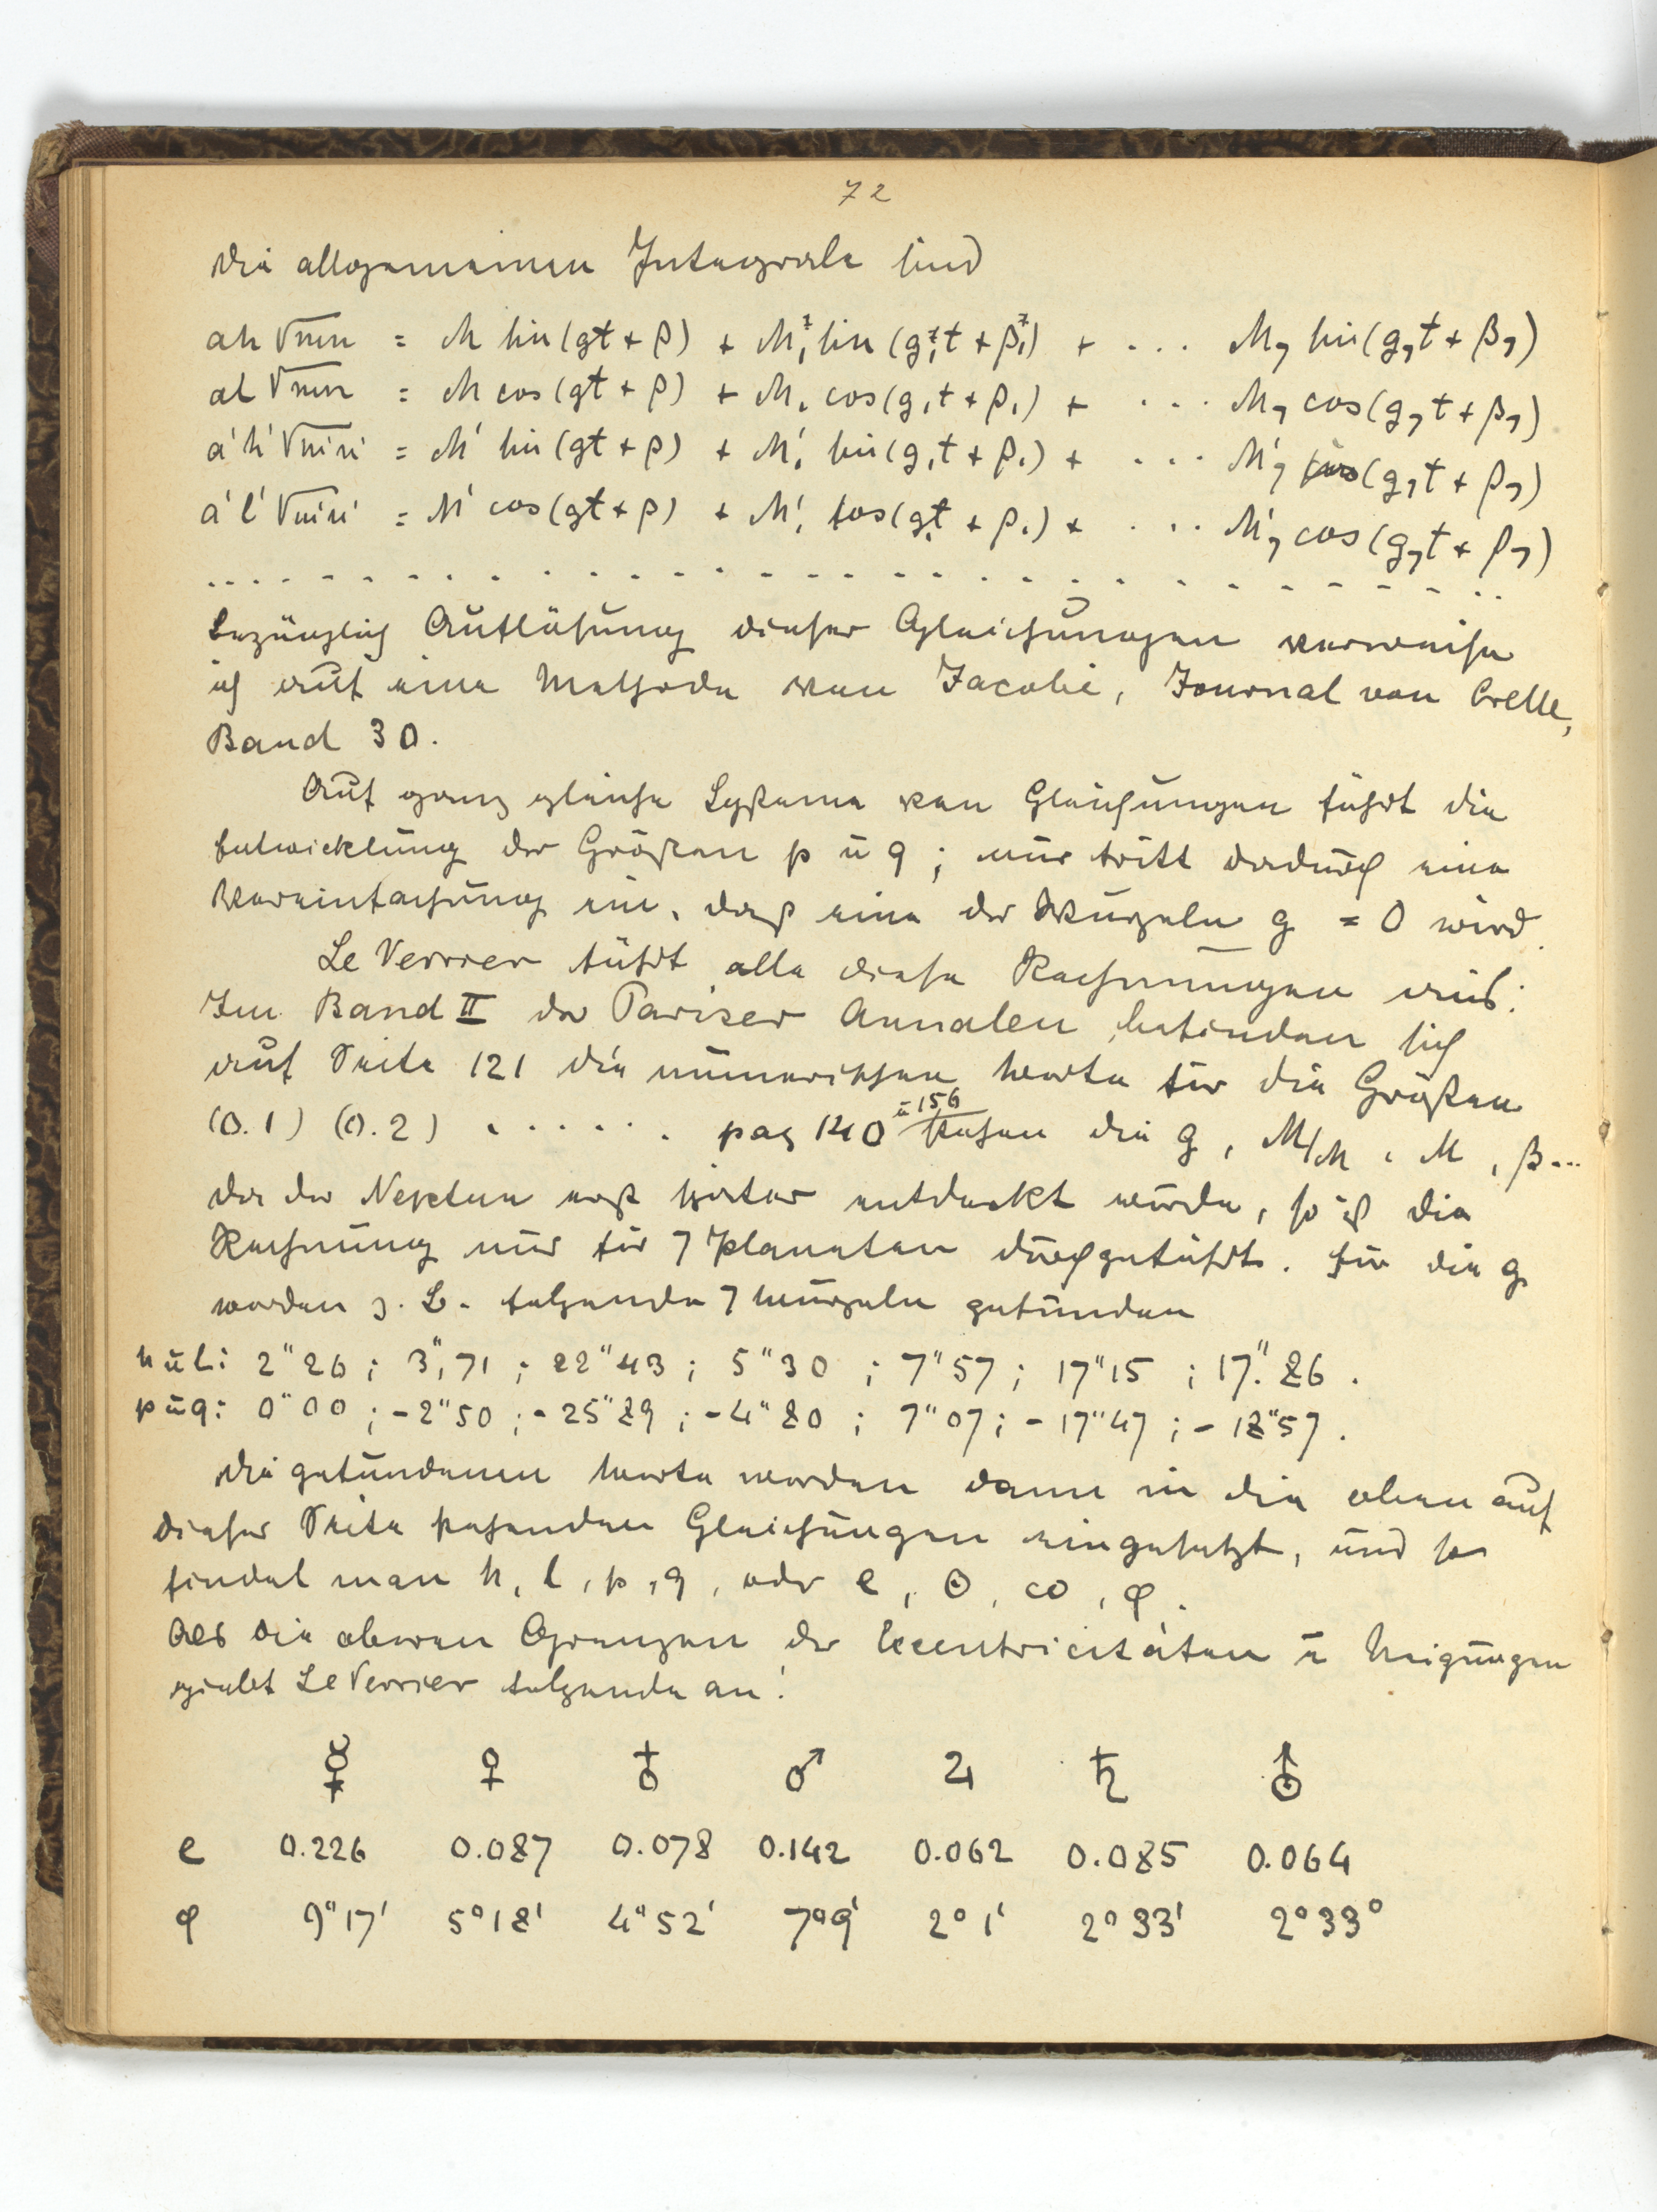 72
Die allgemeinen Integrale sind
ah √mn = M sin(gt + β) + M₁ sin(g₁t + β₁) + ... M₇ sin(g₇t + β₇)
al √mn = M cos(gt + β) + M₁ cos(g₁t + β₁) + ... M₇ cos(g₇t + β₇)
a'h' √m'n' = M' sin(gt + β) + M'₁ sin(g₁t + β₁) + ... M'₇ sin(g₇t + β₇)
a'l' √m'n' = M' cos(gt + β) + M'₁ cos(g₁t + β₁) + ... M'₇ cos(g₇t + β₇)
. . . . . . . . . . . . . . . . . . . . . . . . . . . . . .
Bezüglich Auflösung dieser Gleichungen verweise
ich auf eine Methode von Jacobi, Journal von Crelle,
Band 30.
Auf ganz gleiche Systeme von Gleichungen führt die
Entwicklung der Größen p u q; nur tritt dadurch eine
Vereinfachung ein, daß eine der Wurzeln g = 0 wird.
Le Verrier führt alle diese Rechnungen aus:
Im Band II der Pariser Annalen befinden sich
auf Seite 121 die numerischen Werte für die Größen
(0.1) (0.2) . . . . . . pag 140 u 156 stehen die g, M/M, M, β...
Da der Neptun erst später entdeckt wurde, so ist die
Rechnung nur für 7 Planeten durchgeführt. Für die g
werden z. B. folgende 7 Wurzeln gefunden
h u l: 2"26; 3",71; 22"43; 5"30; 7"57; 17"15; 17."86.
p u q: 0"00; -2"50; -25"89; -4"80; 7"07; -17"47; -18"57.
Die gefundenen Werte werden dann in die oben auf
dieser Seite stehenden Gleichungen eingesetzt, und so
findet man h, l, p, q, oder e, Θ, ω, φ.
Als die oberen Grenzen der Excentricitäten u Neigungen
giebt Le Verrier folgende an:
☿ ♀ ♁ ♂ ♃ ♄ ⛢
e 0.226 0.087 0.078 0.142 0.062 0.085 0.064
φ 9°17' 5°18' 4°52' 7°9' 2°1' 2°33' 2°33°